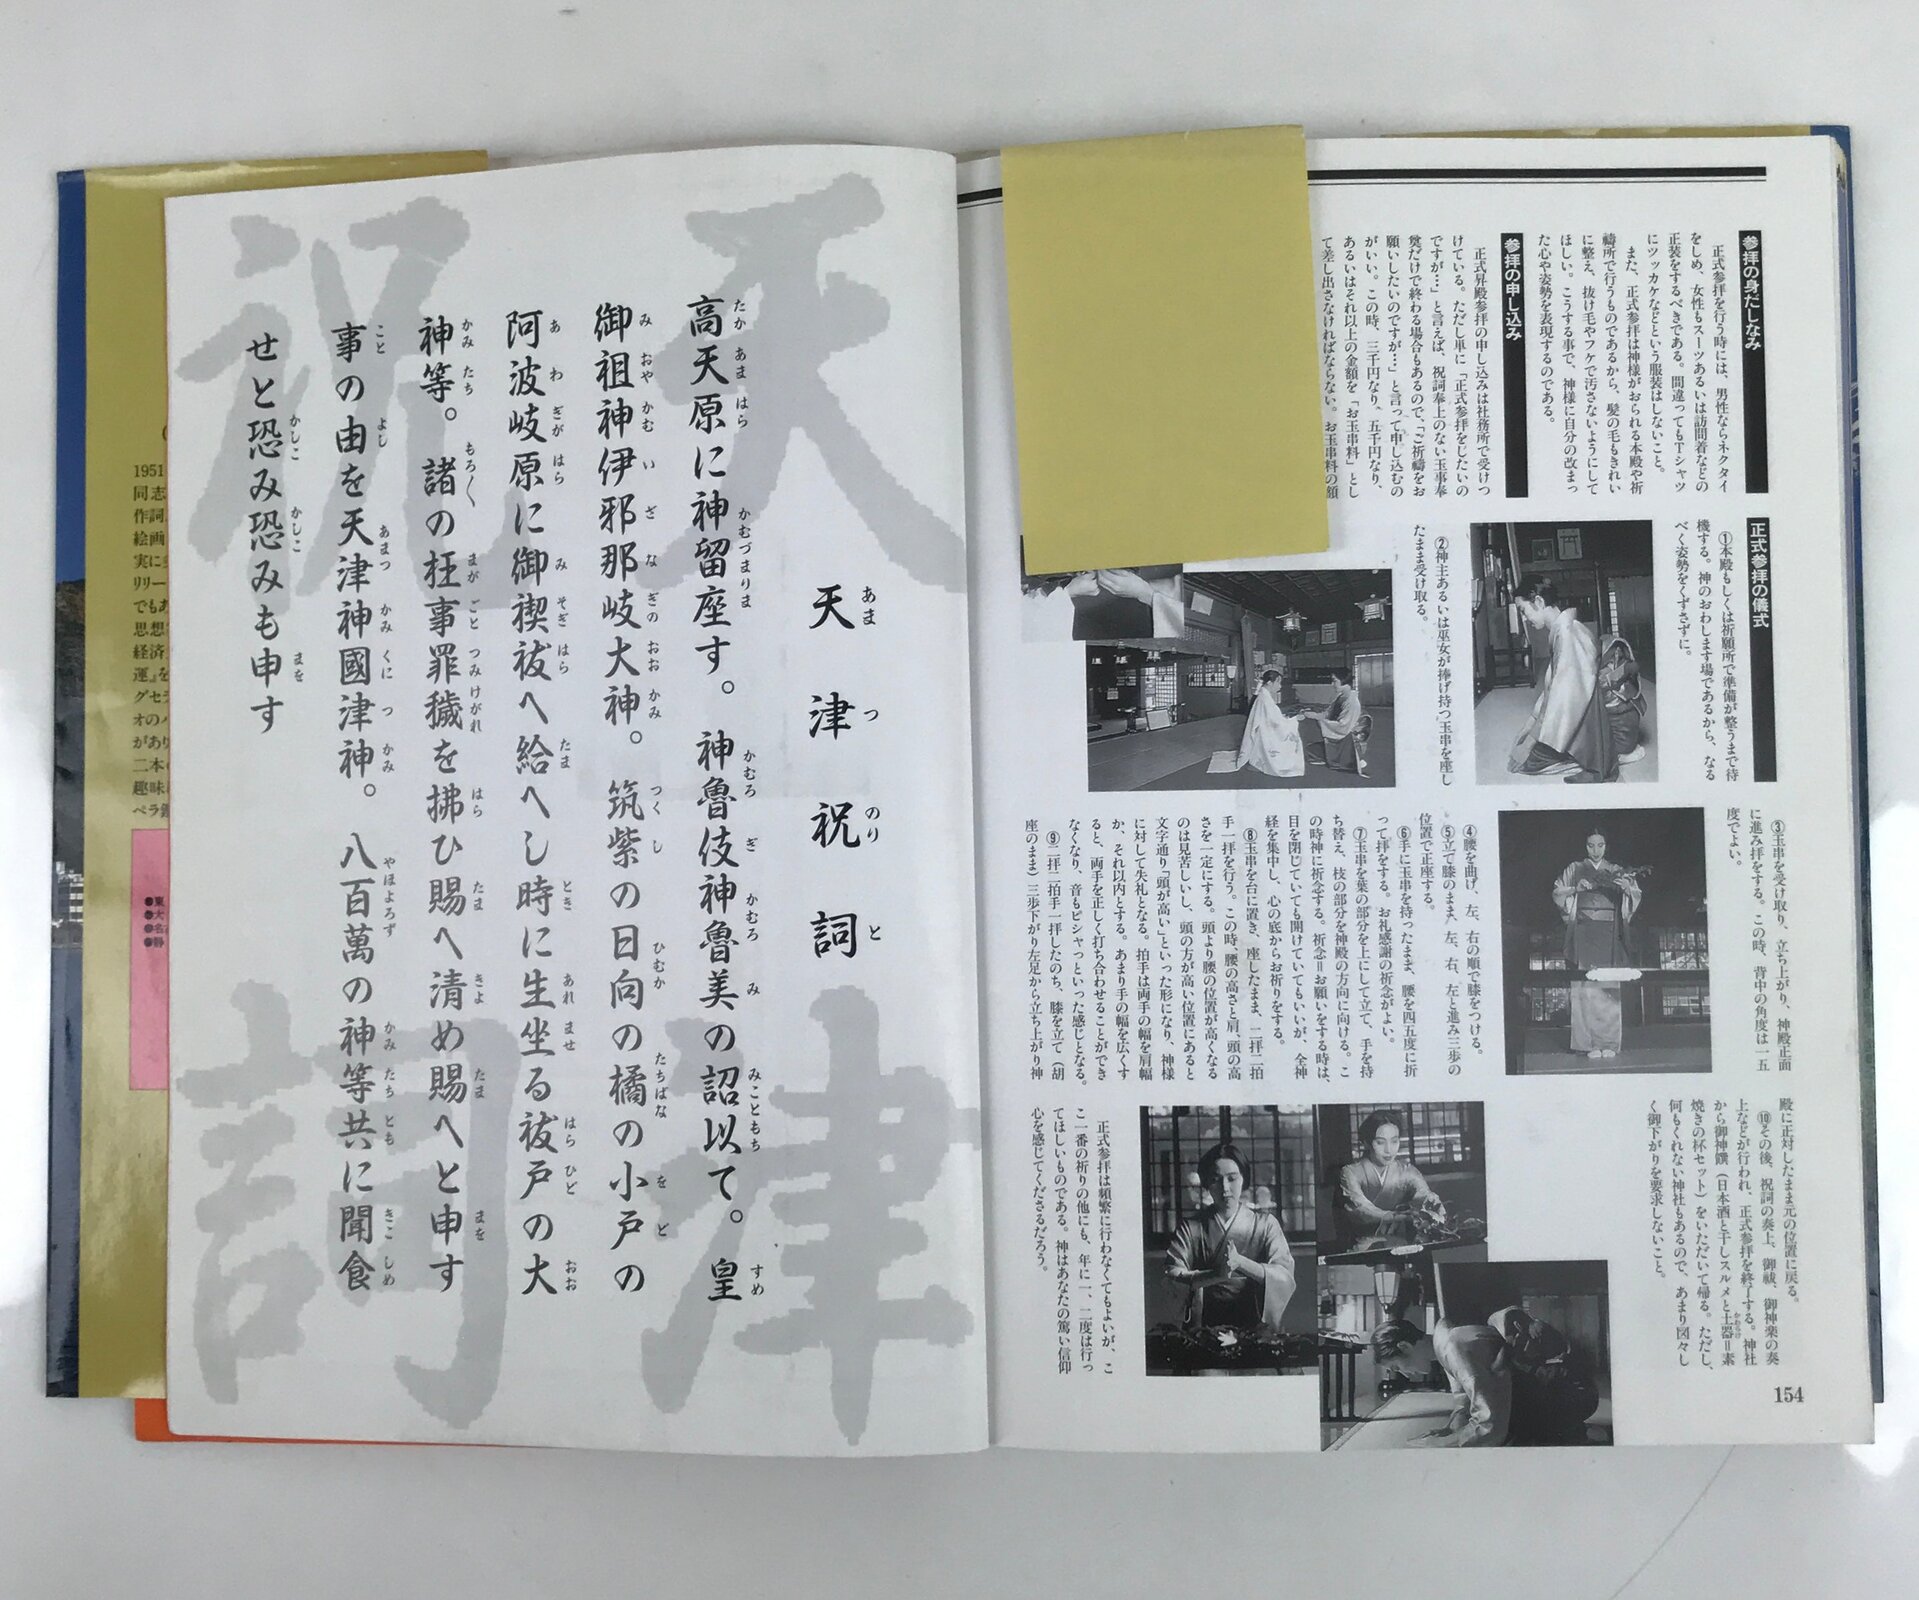 参拝の身だしなみ
正式参拝を行う時には、男性ならネクタイ
をしめ、女性もスーツあるいは訪問着などの
正装をするべきである。間違ってもTシャツ
にツッカケなどという服装はしないこと。
また、正式参拝は神様がおられる本殿や祈
禱所で行うものであるから、髪の毛もきれい
に整え、抜け毛やフケで汚さないようにして
ほしい。こうする事で、神様に自分の改まっ
た心や姿勢を表現するのである。
参拝の申し込み
正式昇殿参拝の申し込みは社務所で受けつ
けている。ただし単に「正式参拝をしたいの
ですが…」と言えば、祝詞奉上のない玉串奉
奠だけで終わる場合もあるので、「ご祈禱をお
願いしたいのですが…」と言って申し込むの
がいい。この時、三千円なり、五千円なり、
あるいはそれ以上の金額を「お玉串料」とし
て差し出さなければならない。お玉串料の額
正式参拝の儀式
①本殿もしくは祈願所で準備が整うまで待
機する。神のおわします場であるから、なる
べく姿勢をくずさずに。
②神主あるいは巫女が捧げ持つ玉串を座し
たまま受け取る。
③玉串を受け取り、立ち上がり、神殿正面
に進み拝をする。この時、背中の角度は一五
度でよい。
④腰を曲げ、左、右の順で膝をつける。
⑤立て膝のまま、左、右、左と進み三歩の
位置で正座する。
⑥手に玉串を持ったまま、腰を四五度に折
って拝をする。お礼感謝の祈念がよい。
⑦玉串を葉の部分を上にして立て、手を持
ち替え、枝の部分を神殿の方向に向ける。こ
の時神に祈念する。祈念＝お願いをする時は、
目を閉じていても開けていてもいいが、全神
経を集中し、心の底からお祈りをする。
⑧玉串を台に置き、座したまま、二拝二拍
手一拝を行う。この時、腰の高さと肩、頭の高
さを一定にする。頭より腰の位置が高くなる
のは見苦しいし、頭の方が高い位置にあると
文字通り「頭が高い」といった形になり、神様
に対して失礼となる。拍手は両手の幅を肩幅
か、それ以内とする。あまり手の幅を広くす
ると、両手を正しく打ち合わせることができ
なくなり、音もピシャっといった感じとなる。
⑨二拝二拍手一拝したのち、膝を立て（胡
座のまま）三歩下がり左足から立ち上がり神
殿に正対したまま元の位置に戻る。
⑩その後、祝詞の奏上、御祓、御神楽の奏
上などが行われ、正式参拝を終了する。神社
から御神饌（日本酒と干しスルメと土器＝素
焼きの杯セット）をいただいて帰る。ただし、
何もくれない神社もあるので、あまり図々し
く御下がりを要求しないこと。
正式参拝は頻繁に行わなくてもよいが、こ
こ一番の祈りの他にも、年に一、二度は行っ
てほしいものである。神はあなたの篤い信仰
心を感じてくださるだろう。
154
天津祝詞
天津祝詞
高天原に神留座す。神魯伎神魯美の詔以て。皇
御祖神伊邪那岐大神。筑紫の日向の橘の小戸の
阿波岐原に御禊祓へ給へし時に生坐る祓戸の大
神等。諸の枉事罪穢を拂ひ賜へ清め賜へと申す
事の由を天津神國津神。八百萬の神等共に聞食
せと恐み恐みも申す
1951
同志
作詞
絵画
実に
リリー
でもあ
思想
経済
運』を
グセラ
オの
があり
二本
趣味
ペラ